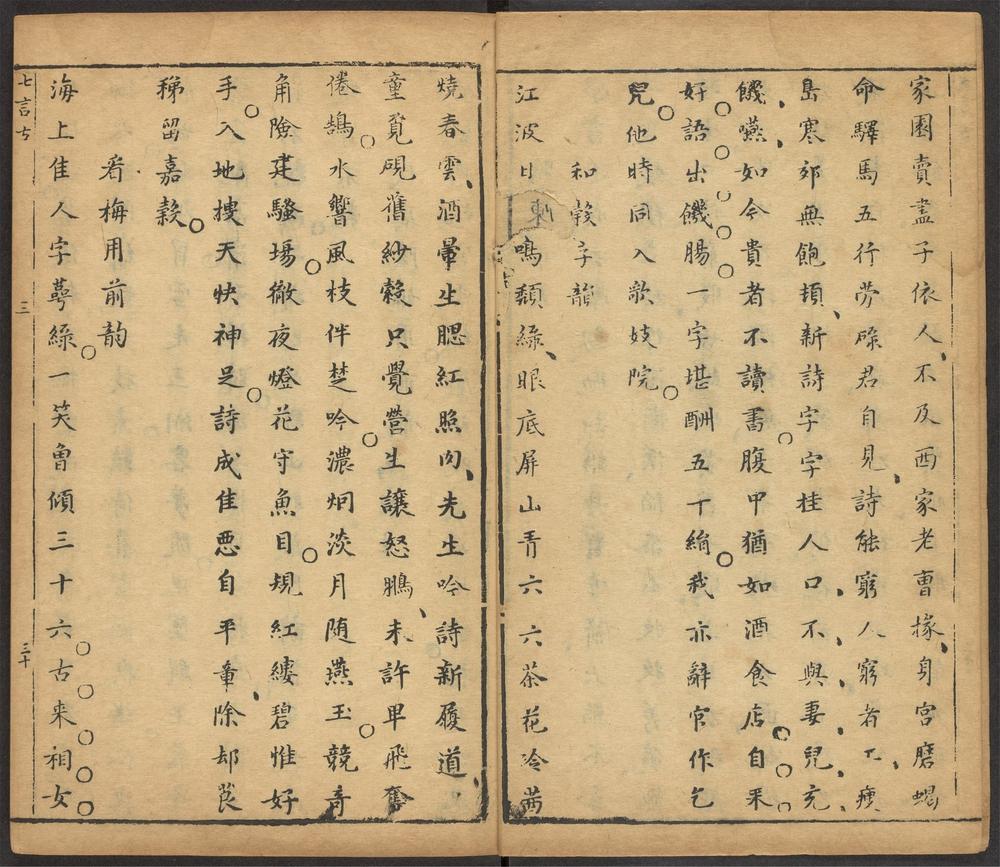 家園賣盡子依人不及西家老曹掾身宮磨蝎
命驛馬五行勞碌君自見詩能窮人窮者工瘐
島寒郊無飽頓新詩字字桂人口不與妻兒充
饑嚥如今貴者不讀書腹中猶如酒食店自来
好語出饑腸一字堪酬五千絹我亦辭官作乞
兒他時同入歌妓院
和穀字韻
江波日鳴頹綠眼底屏山青六六茶花冷茜
燒春雲酒暈生腮紅照肉先生吟詩新履道
童覓硯舊紗縠只覺營生讓怒鵬未許卑飛奮
倦鵠水響風枝伴楚吟濃烟淡月随燕玉競奇
角險建騷場徹夜燈花守魚目規紅縷碧惟好
手入地搜天快神足詩成佳惡自平章除却莨
稊留嘉穀
看梅用前韵
海上佳人字萼綠一笑曾傾三十六古来相女
七言古
三
三十